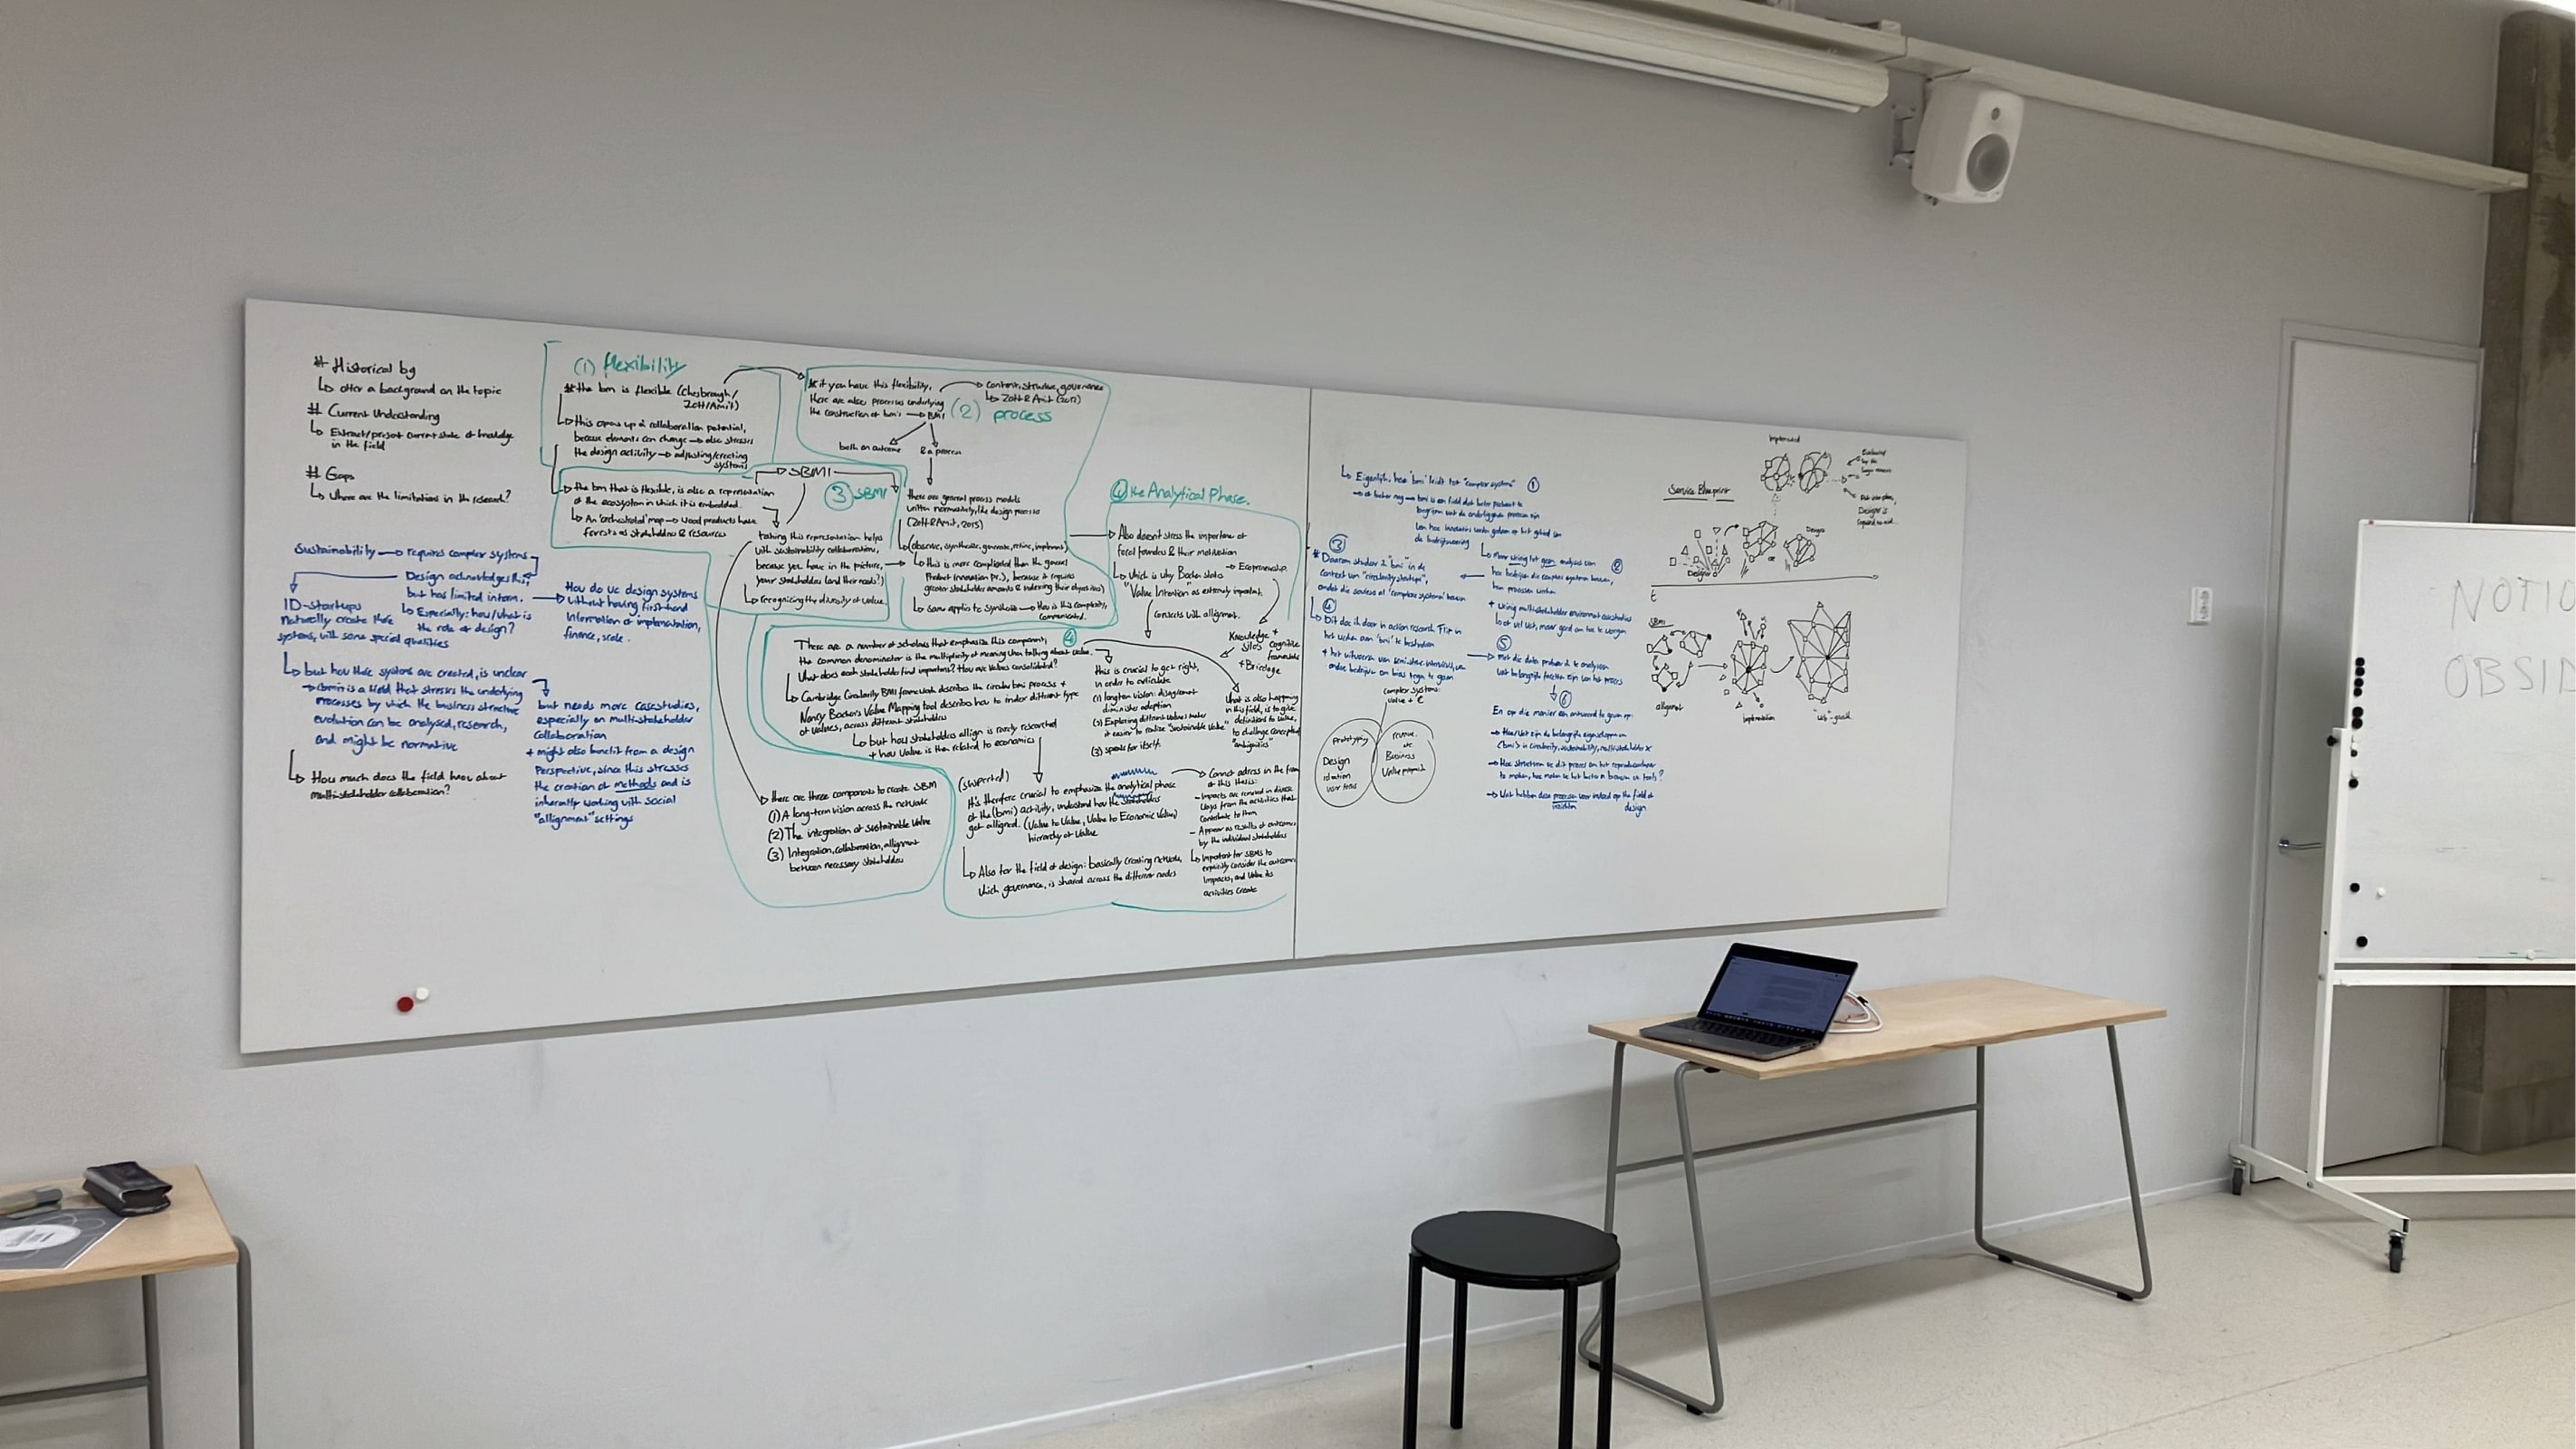 # Historical bg
↳ offer a background on the topic
# Current Understanding
↳ Extract/present current state of knowledge
in the field
# Gaps
↳ Where are the limitations in the research?
Sustainability → requires complex systems
Design acknowledges this,
but has limited inform.
↳ Especially: how/what is
the role of design?
→ How do we design systems
without having firsthand
information of implementation,
finance, scale.
ID-startups
Naturally create these
systems, with some special qualities
↳ but how these systems are created, is unclear
is a field that stresses the underlying
processes by which the business structure
evolution can be analysed, research,
and might be normative
↳ How much does the field know about
multi-stakeholder collaboration?
but needs more casestudies,
especially on multi-stakeholder
collaboration
+ might also benefit from a design
perspective, since this stresses
the creation of methods and is
inherently working with social
"allignment" settings
(1) flexibility
# the bm is flexible (Chesbrough/
Zott/Amit)
↳ this opens up a collaboration potential,
because elements can change → also stresses
the design activity → adjusting/creating
systems
↳ the bm that is flexible, is also a representation
of the ecosystem in which it is embedded.
↳ An 'orchestrated' map → wood products have
forests as stakeholders & resources
# if you have this flexibility,
there are also processes underlying
the construction of bm's → BMI
→ content, structure, governance
↳ Zott & Amit (2012)
(2) process
both an outcome
& a process
there are general process models
written normatively, like design processes
(Zott & Amit, 2015)
↳ (observe, synthesize, generate, refine, implement)
↳ this is more complicated than the general
Product Innovation Pr.), because it requires
greater stakeholder amounts & indexing their objectives)
↳ same applies to synthesis → How is this complexity
communicated.
→ SBMI
(3) SBMI
taking this representation helps
with sustainability collaboration,
because you have in the picture,
your stakeholders (and their needs?)
↳ recognizing the diversity of value
(4) the Analytical Phase.
↳ Also doesn't stress the importance of
focal founders & their motivation
→ Ecopreneurship
↳ Which is why Bocken states
"Value Intention" as extremely important.
connects with alignment.
Knowledge + cognitive
silos frameworks
+ Bricolage
(4)
There are a number of scholars that emphasize this component,
the common denominator is the multiplicity of meaning when talking about value.
What does each stakeholder find important? How are values consolidated?
↳ Cambridge Circularity BMI framework describes the circular bmi process +
Nancy Bocken's Value Mapping tool describes how to render different type
of values, across different stakeholders
↳ but how stakeholders allign is rarely researched
+ how value is then related to economics
This is crucial to get right,
in order to articulate
(1) longterm vision: disagreement
diminishes adoption
(2) Exploring different values makes
it easier to realise "sustainable value"
(3) speaks for itself.
What is also happening
in this field, is to give
definitions to value,
to challenge conceptual
"ambiguities"
there are three components to create SBM
(1) A long-term vision across the network
(2) The integration of sustainable value
(3) Integration, collaboration, allignment
between necessary stakeholders
(suspected)
It's therefore crucial to emphasize the analytical phase
of the (bmi) activity, understand how the stakeholders
get alligned. (Value to Value, Value to Economic Value)
hierarchy of value
↳ Also for the field of design: basically creating network,
which governance, is shared across the different nodes
→ Cannot address in the frame
of this thesis:
- Impacts are removed in diverse
ways from the activities that
contribute to them
- Appear as results of outcomes
by the individual stakeholders
↳ Important for SBMs to
explicitly consider the outcomes
impacts, and value its
activities create
↳ Eigenlijk, hoe 'bmi' leidt tot "complex systems" (1)
bmi is een field dat beter probeert te
begrijpen wat de onderliggende processen zijn
de bedrijfsvoering
↳ Maar weinig tot geen analyses van (2)
hoe bedrijven die complexe systemen bouwen,
hun processen werken
(3)
# Daarom studeer ik 'bmi' in de
context van "circularity startups",
omdat die sowieso al 'complexe systemen' bouwen
(4)
↳ Dit doe ik door in action research
het werken aan 'bmi' te bestuderen
+ het uitvoeren van semi-struc interviews, van
andere bedrijven om bias tegen te gaan
(5)
→ Met die data probeer ik te analyseren
wat belangrijke facetten zijn van het proces
(6)
En op die manier een antwoord te geven op:
→ Hoe/Wat zijn de belangrijke eigenschappen van
(bmi) in circularity, sustainability, multistakeholder
→ Wat hebben deze processen voor invloed op the field of
inzichten design
complex systems:
value + €
prototyping
Design
ideation
user tests
revenue
etc.
Business
Value proposit.
Service Blueprint
Implemented
Designer
Designer
t
SBMI
allignment
Implementation